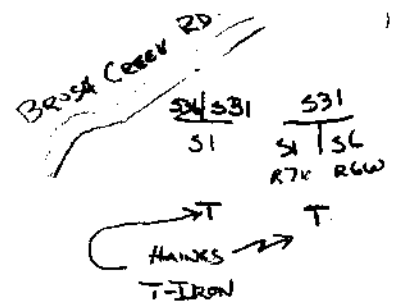 BRUSH CREEK RD
S36 | S31
S1
S31
S1 | S6
R7W R6W
T T
HAINES
T-IRON